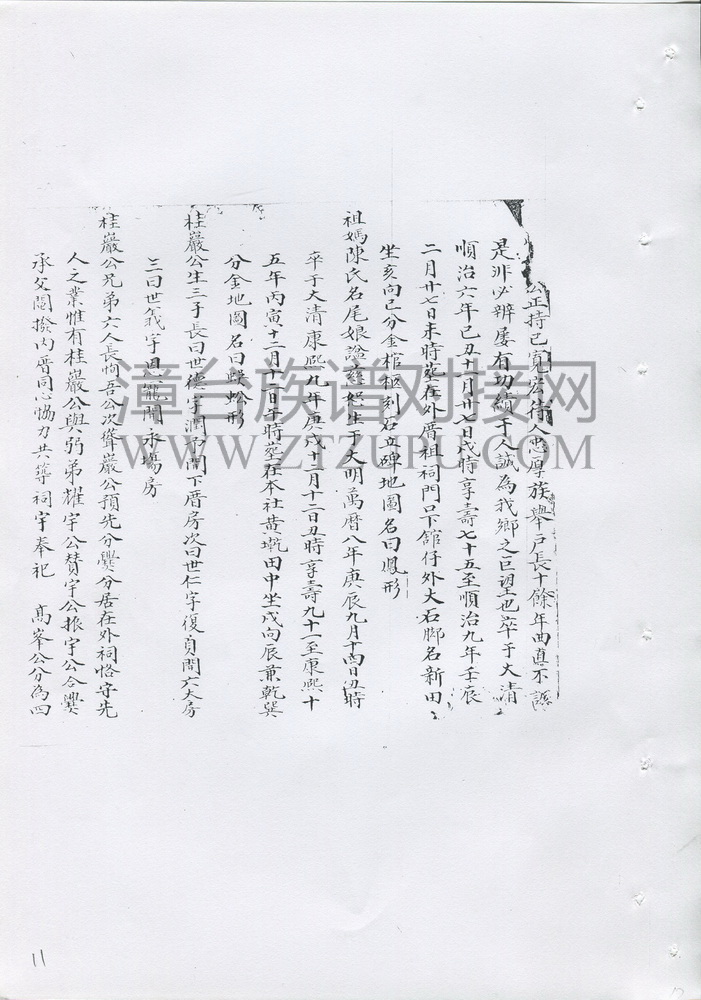 公正持己寬宏待人忠厚族舉戶長十餘年曲直不
是非必辨屢有功績于人誠為我鄉之巨望也卒于大清
順治六年己丑十月廿七日戌時享壽七十五至順治九年壬辰
二月廿七日未時塟在外厝祖祠門口下舘仔外大石脚名新田
坐亥向巳分金棺柩刻石立碑地圖名曰鳳形
祖媽陳氏名尾娘謚慈 生于大明萬曆八年庚辰九月十四日丑時
卒于大清康熙九年庚戌十二月十二日丑時享壽九十一至康熙十
五年丙寅十二月十一日午時塟在本社黄墘田中坐戌向辰兼乾巽
分金地圖名曰蜈蚣形
桂巖公生三子長曰世德字潤 開下厝房次曰世仁字復貞開六大房
三曰世義字 開永場房
桂巖公兄弟六人長 吾公次 巖公預先分爨分居在外祠恪守先
人之業惟有桂巖公與弱弟耀宇公賛宇公振宇公合爨
承父鬮撥內厝同心協力共築祠宇奉祀 高峯公分為四
漳台族谱对接网
WWW.ZTZUPU.COM
11